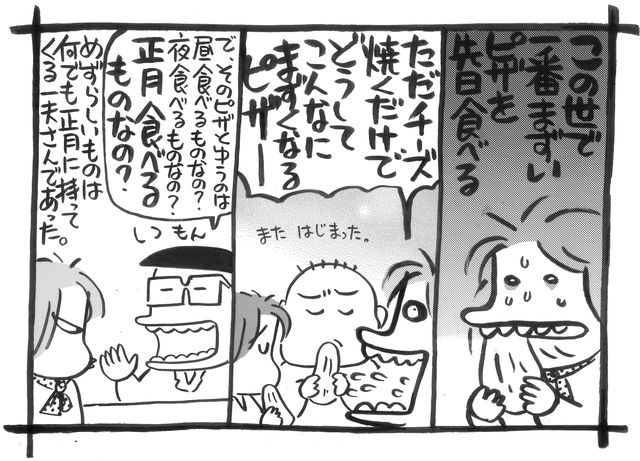 この世で
一番まずい
ピザを
先日食べる
ただチーズ
焼くだけで
どうして
こんなに
まずくなる
ピザー
また はじまった。
で、そのピザとゆうのは
昼食べるものなの?
夜食べるものなの?
正月食べる
ものなの?
しつもん
めずらしいものは
何でも正月に持って
くる一夫さんであった。